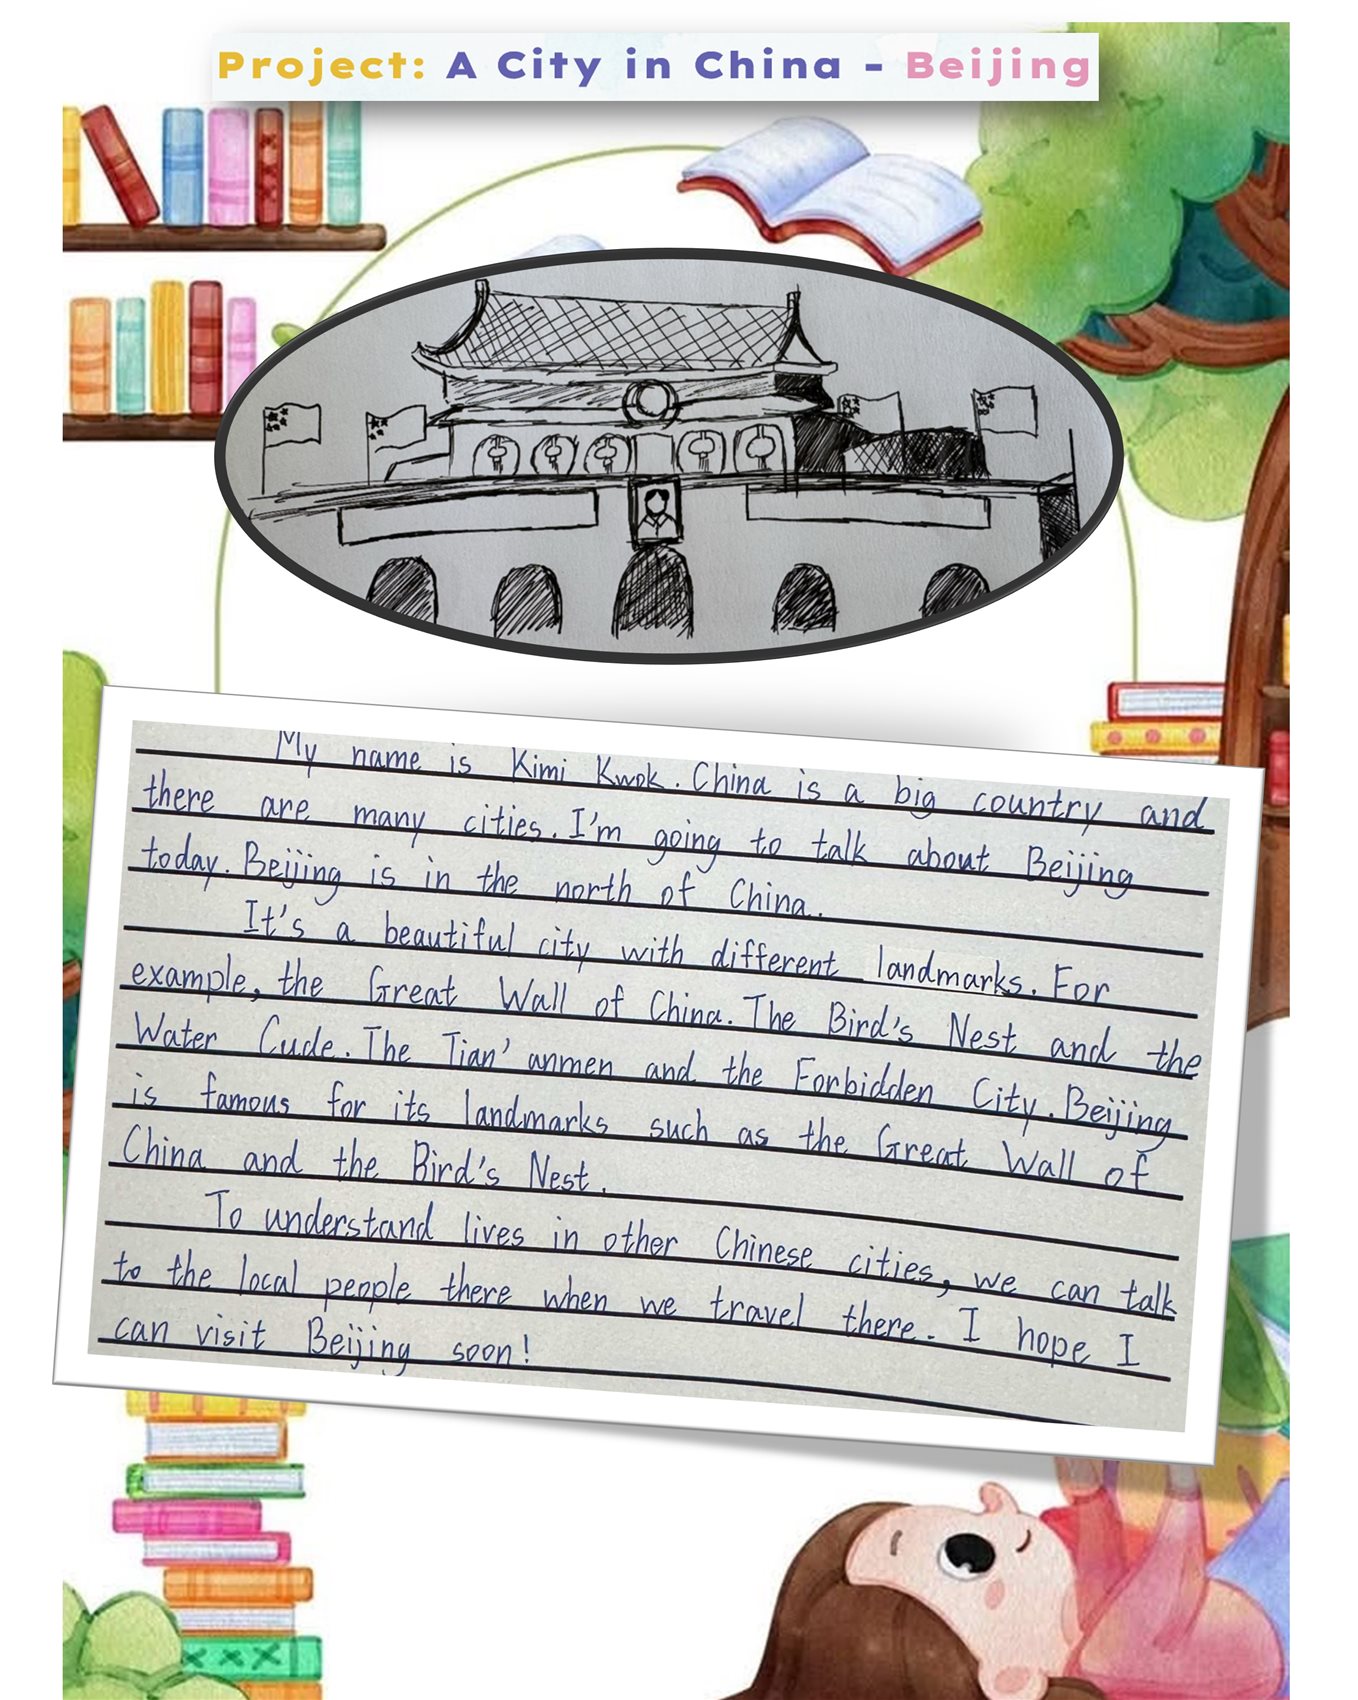 Project: A City in China - Beijing
My name is Kimi Kwok. China is a big country and
there are many cities. I'm going to talk about Beijing
today. Beijing is in the north of China.
It's a beautiful city with different landmarks. For
example, the Great Wall of China. The Bird's Nest and the
Water Cude. The Tian'anmen and the Forbidden City. Beijing
is famous for its landmarks such as the Great Wall of
China and the Bird's Nest.
To understand lives in other Chinese cities, we can talk
to the local people there when we travel there. I hope I
can visit Beijing soon!